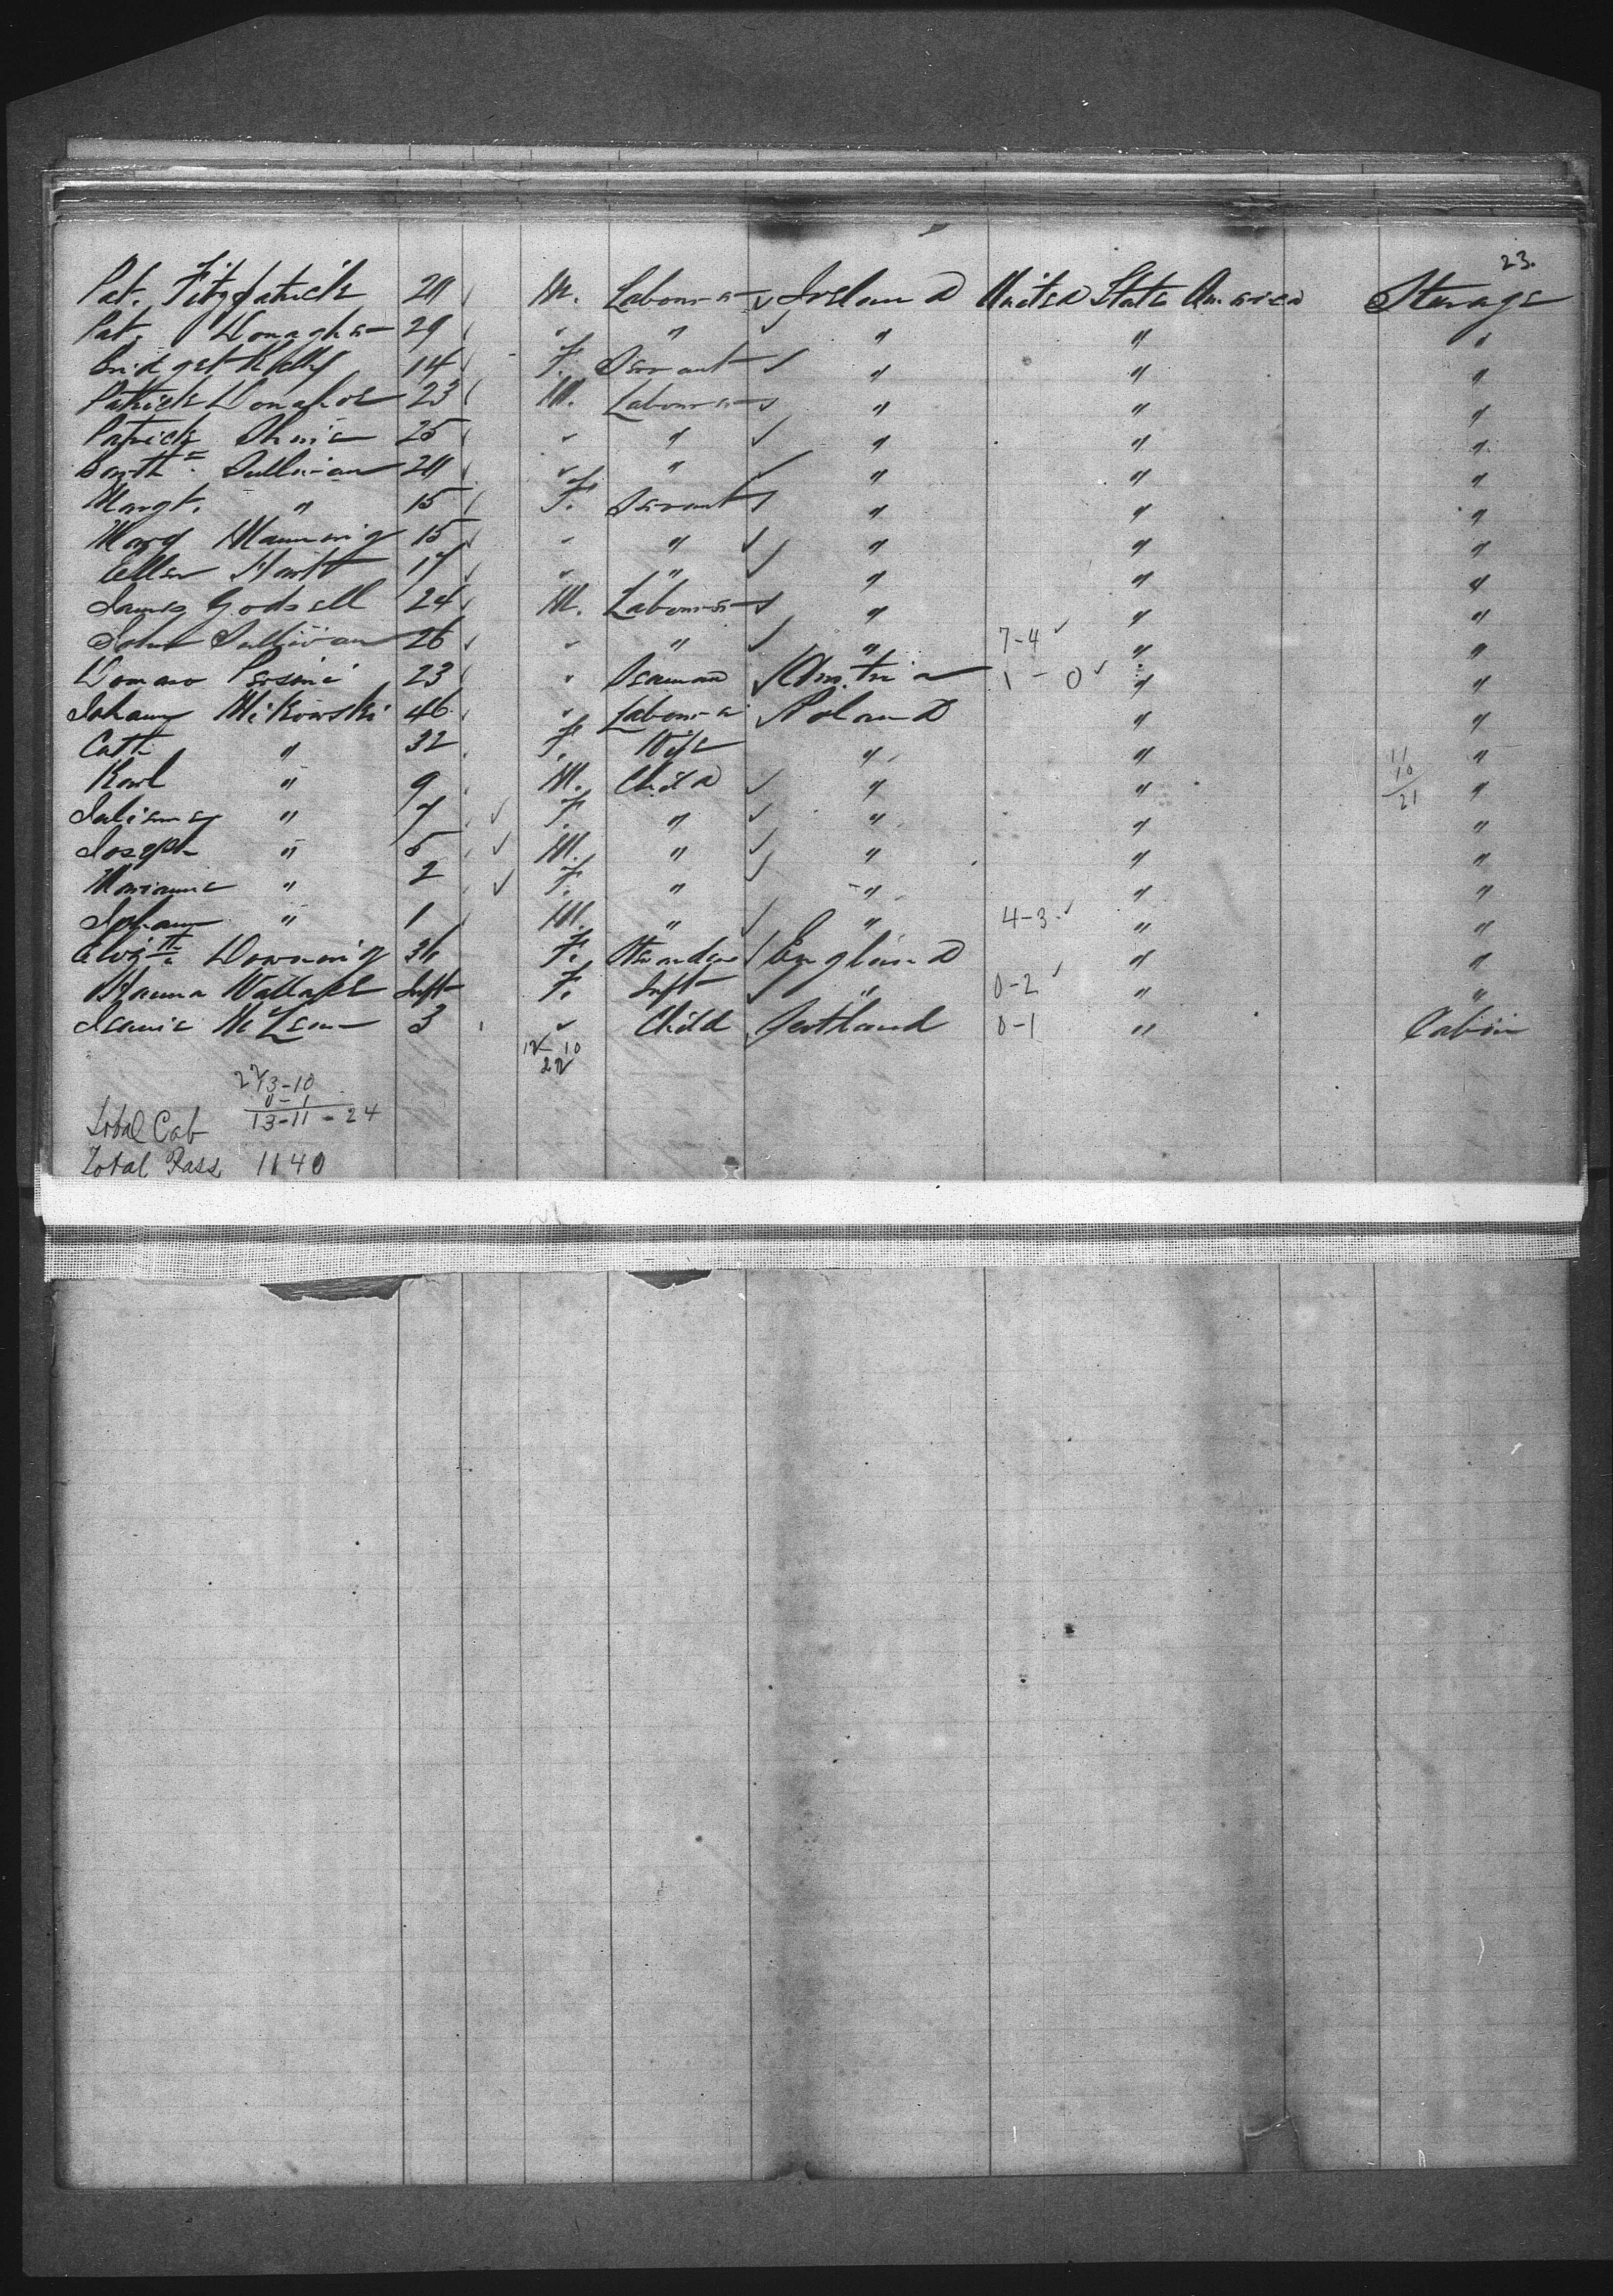 23.
Pat. Fitzpatrick 20 M. Labourer Ireland United States America Steerage
Pat. Donagher 29 " " " " "
Bridget Kelly 14 F. Servant " " "
Patrick Donahoe 23 M. Labourer " " "
Patrick 25 " " " " "
Sullivan 20 " " " " "
Margt. " 15 F. Servant " " "
Mary Manning 15 " " " " "
Ellen 17 " " " " "
James Godsell 24 M. Labourer " " "
John Sullivan 26 " " " 7-4 " "
23 " Seaman Austria 1-0 " "
Johann Mikowski 46 " Labourer Poland " "
Cath " 32 F. Wife " " "
Karl " 9 M. Child " " 11 10 21 "
" 7 F. " " " "
Joseph " 5 M. " " " "
Marianne " 2 F. " " " "
Johann " 1 M. " " 4-3 " "
Downing 36 F. England " "
Wallace Inft F. Inft " 0-2 " "
Jeanie McLean 3 " Child Scotland 0-1 " Cabin
12 10
22
22 13-10
0-1
Total Cab 13-11-24
Total Pass 1140